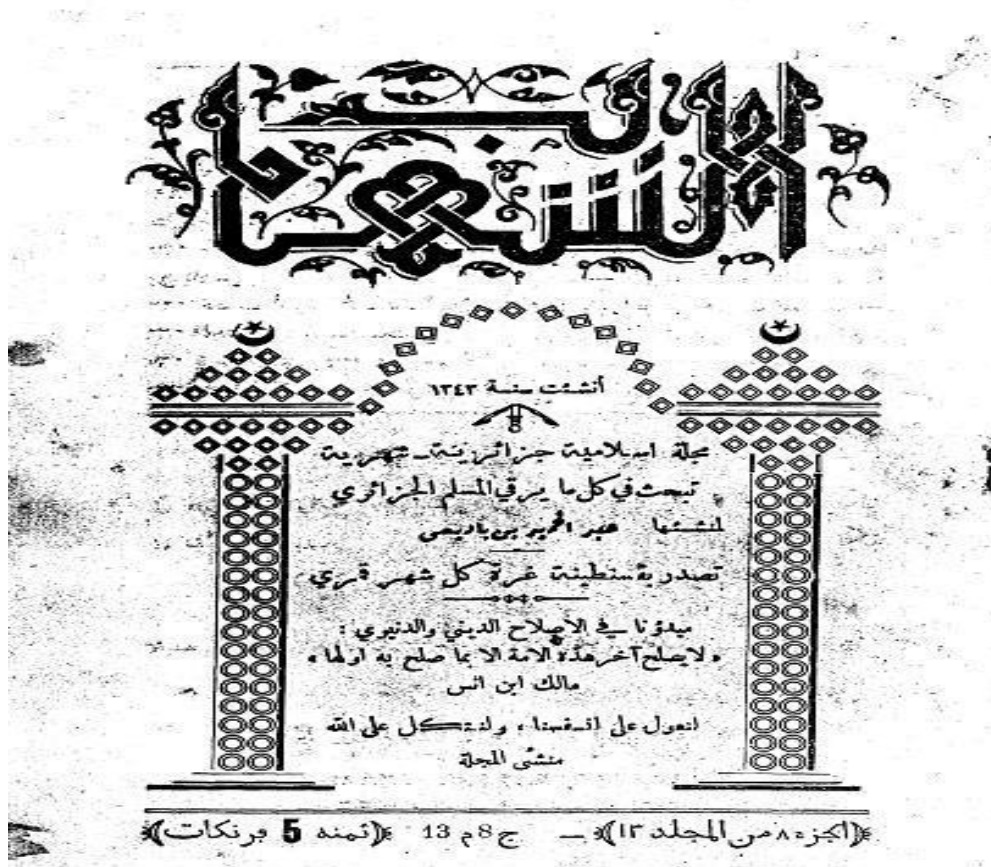 الشهاب
أنشئت سنة ١٣٤٣
مجلة اسلامية جزائرية ـ شهرية
تبحث في كل ما يرقي المسلم الجزائري
لمنشئها عبد الحميد بن باديس
تصدر بقسنطينة غرة كل شهر قمري
مبدؤنا في الإصلاح الديني والدنيوي :
« لا يصلح آخر هذه الامة الا بما صلح به اولها »
مالك ابن انس
لنعول على انفسنا ، ولنتكل على الله
منشئ المجلة
﴿الجزء ٨ من المجلد ١٣﴾ ــ ج 8 م 13 ﴿ثمنه 5 فرنكات﴾